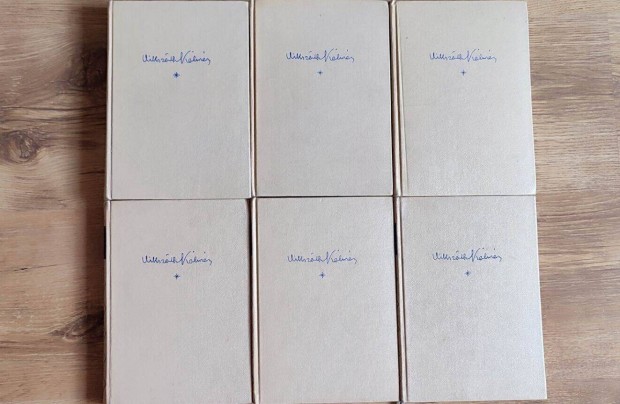 Mikszáth Kálmán
Mikszáth Kálmán
Mikszáth Kálmán
Mikszáth Kálmán
Mikszáth Kálmán
Mikszáth Kálmán